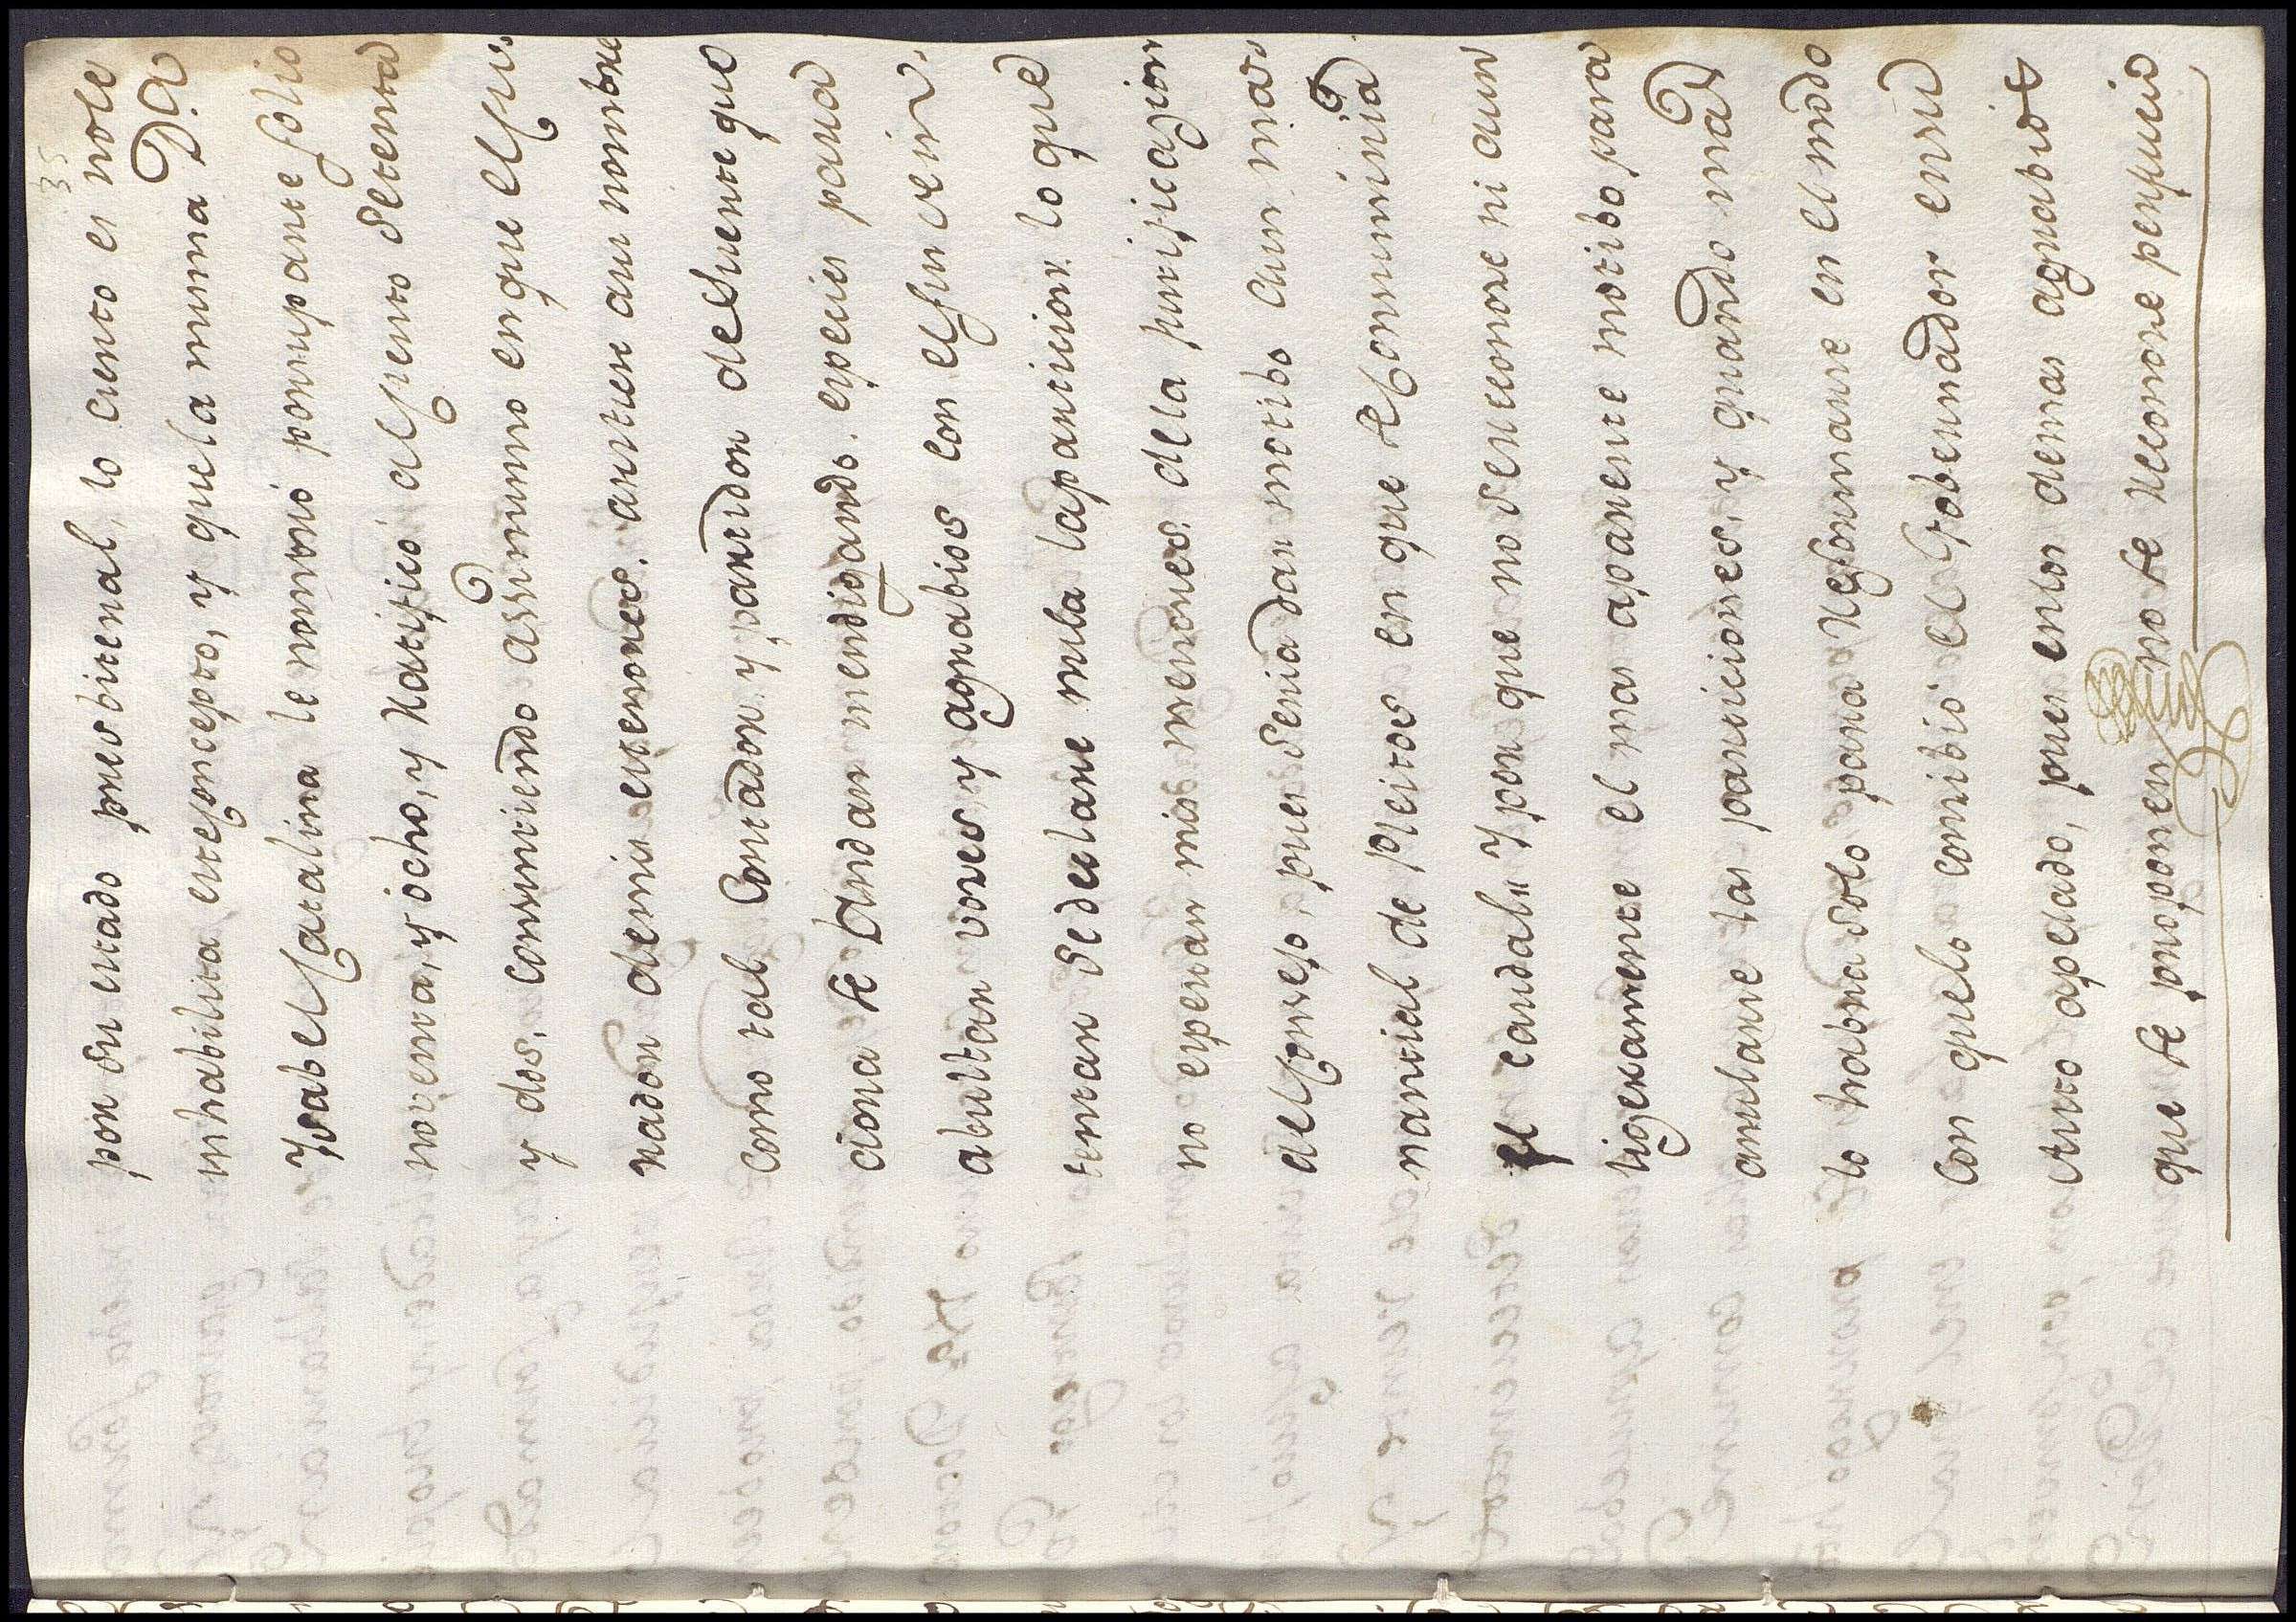 35
por su estado presbiteral, lo cierto es nole
inhabilita esteconcepto, y quela misma D.a
Ysabel Catalina le nombró porsuparte folio
noventa, y ócho, y Ratificó alciento setenta
y dos, consintiendo assimismo enque elfir
nador demis eisenores. asistiese asu nombre
como tal Contador y partidor desuerte que
ciona se andan mendigando. especies para
abultar voses, y agrabios con elfin dein
tentar sedeclare nula laparticion. lo que
no esperan mis menores. dela justificazion
delConsejo, pues seria dar motibo aun ma
nantial de pleitos en que se Consumiria
el caudal Y por que no sencuentre ni aun
ligeramente el mas aparente motibo para
anularse las particiones, y quando mas
lo habra solo para Reformarse en el modo
Con quelo consibió el Gobernador ensu
Auto apelado, pues enlos demas agrabios
que se proponen no se Reconose perjuicio